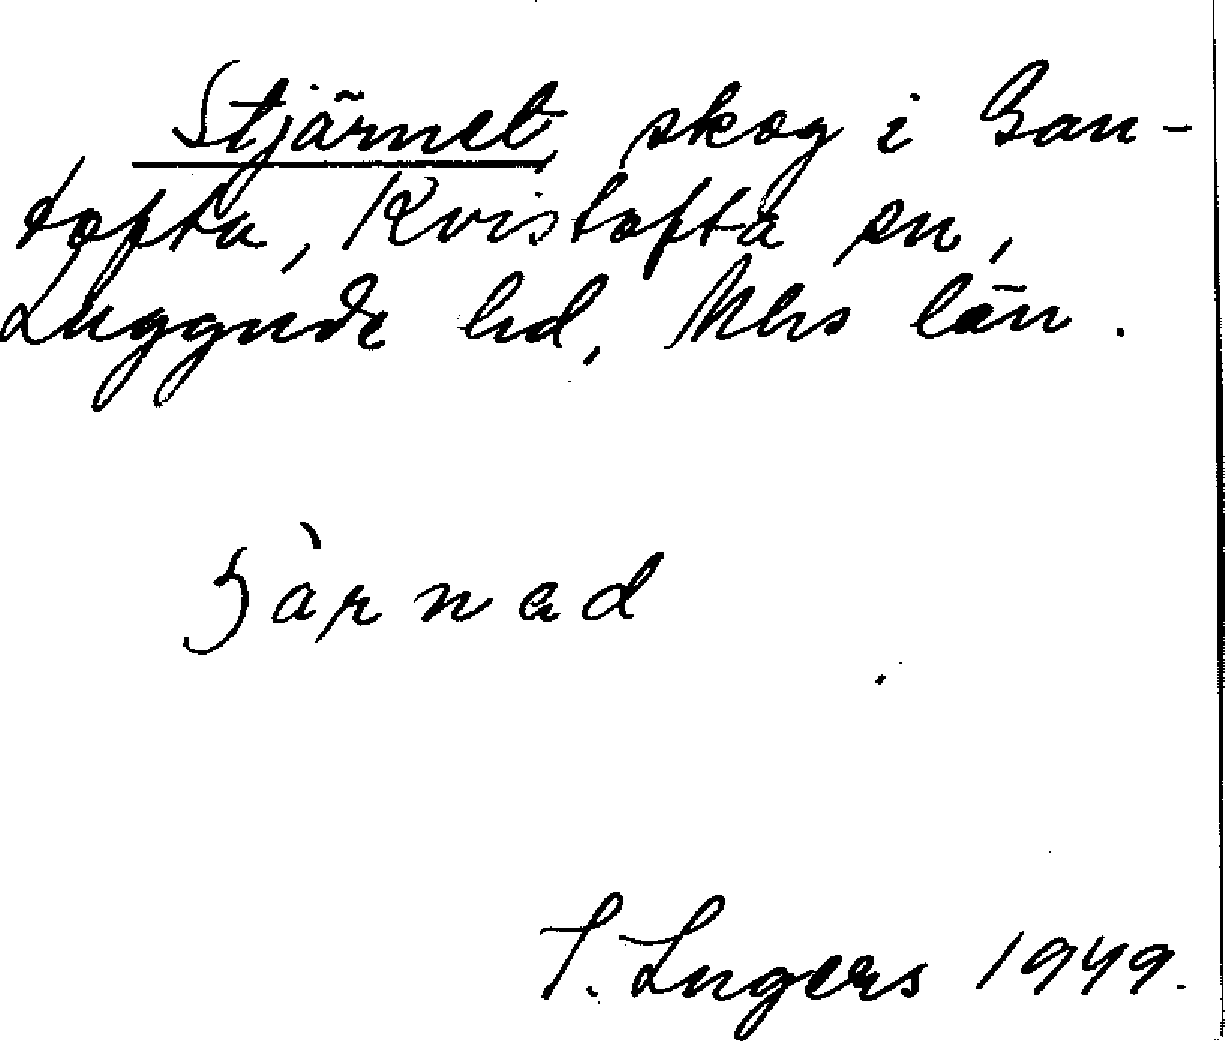 Stjärnet, skog i Gan-
tofta, Kvistofta sn,
Luggude hd, Mhs län.
ʃàrnad
I. Ingers 1949.